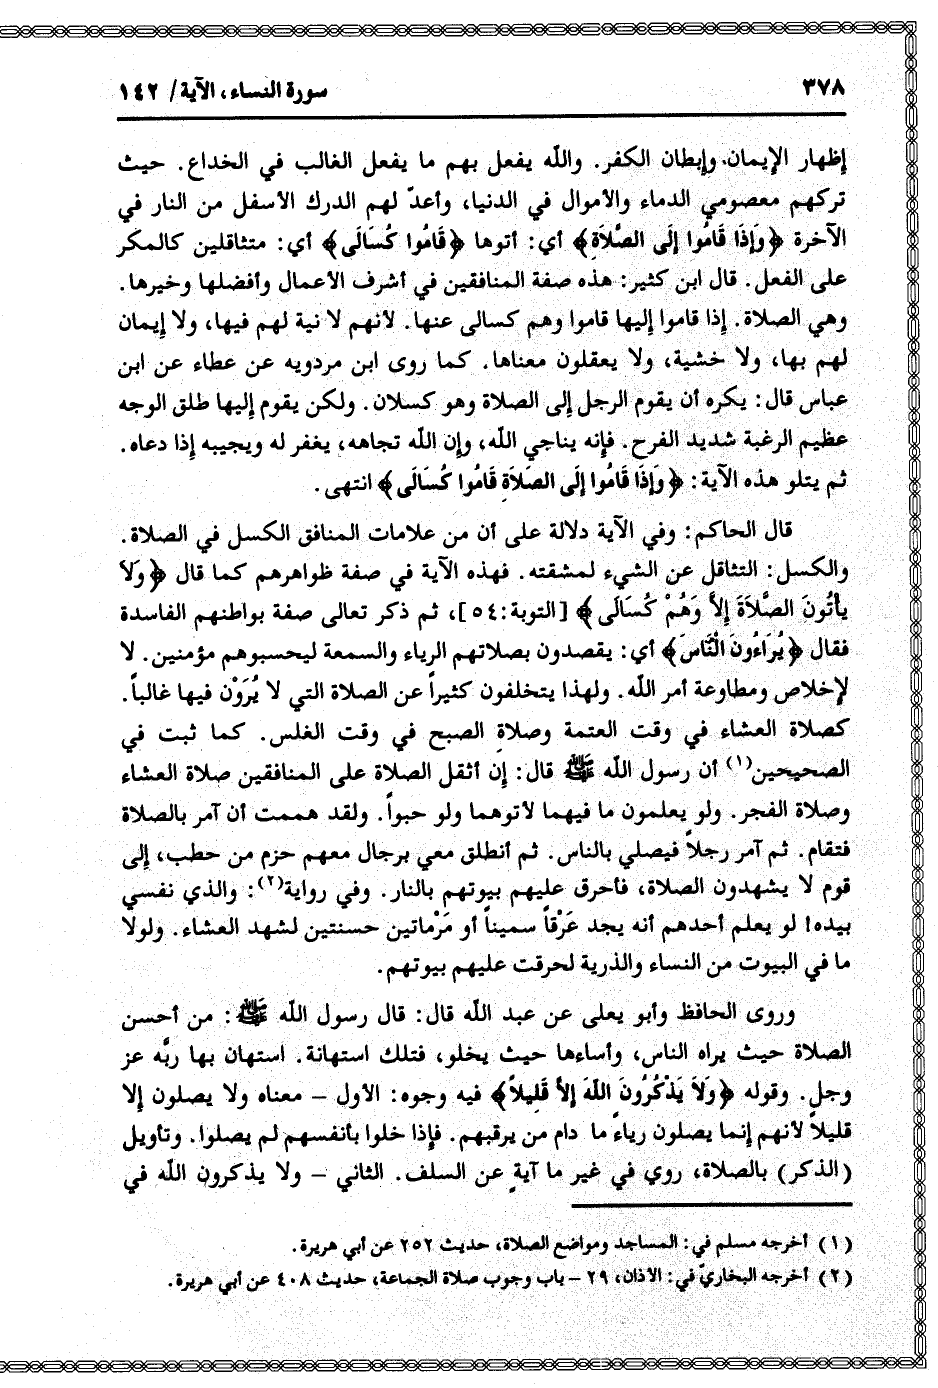 ٣٧٨
سورة النساء، الآية/ ١٤٢
إظهار الإيمان وإبطان الكفر. والله يفعل بهم ما يفعل الغالب في الخداع. حيث
تركهم معصومي الدماء والأموال في الدنيا، وأعدّ لهم الدرك الأسفل من النار في
الآخرة ﴿وَإِذَا قَامُوا إِلَى الصَّلاَةِ﴾ أي: أتوها ﴿قَامُوا كُسَالَى﴾ أي: متثاقلين كالمكرَه
على الفعل. قال ابن كثير: هذه صفة المنافقين في أشرف الأعمال وأفضلها وخيرها.
وهي الصلاة. إذا قاموا إليها قاموا وهم كسالى عنها. لأنهم لا نية لهم فيها، ولا إيمان
لهم بها، ولا خشية، ولا يعقلون معناها. كما روى ابن مردويه عن عطاء عن ابن
عباس قال: يكره أن يقوم الرجل إلى الصلاة وهو كسلان. ولكن يقوم إليها طلق الوجه
عظيم الرغبة شديد الفرح. فإنه يناجي الله، وإن الله تجاهه، يغفر له ويجيبه إذا دعاه.
ثم يتلو هذه الآية: ﴿وَإِذَا قَامُوا إِلَى الصَلاَةِ قَامُوا كُسَالَى﴾ انتهى.
قال الحاكم: وفي الآية دلالة على أن من علامات المنافق الكسل في الصلاة.
والكسل: التثاقل عن الشيء لمشقته. فهذه الآية في صفة ظواهرهم كما قال ﴿وَلاَ
يأتُونَ الصَّلاَةَ إِلاَّ وَهُمْ كُسَالَى﴾ [التوبة:٥٤]، ثم ذكر تعالى صفة بواطنهم الفاسدة
فقال ﴿يُرَاءُونَ النَّاسَ﴾ أي: يقصدون بصلاتهم الرياء والسمعة ليحسبوهم مؤمنين. لا
لإخلاص ومطاوعة أمر الله. ولهذا يتخلفون كثيراً عن الصلاة التي لا يُرَوْن فيها غالباً.
كصلاة العشاء في وقت العتمة وصلاةِ الصبح في وقت الغلس. كما ثبت في
الصحيحين(١) أن رسول الله ﷺ قال: إن أثقل الصلاة على المنافقين صلاة العشاء
وصلاة الفجر. ولو يعلمون ما فيهما لأتوهما ولو حبواً. ولقد هممت أن آمر بالصلاة
فتقام. ثم آمر رجلاً فيصلي بالناس. ثم أنطلق معي برجال معهم حزم من حطب، إلى
قوم لا يشهدون الصلاة، فأحرق عليهم بيوتهم بالنار. وفي رواية(٢): والذي نفسي
بيده! لو يعلم أحدهم أنه يجد عَرْقاً سميناً أو مَرْماتين حسنتين لشهد العشاء. ولولا
ما في البيوت من النساء والذرية لحرقت عليهم بيوتهم.
وروى الحافظ وأبو يعلى عن عبد الله قال: قال رسول الله ﷺ: من أحسن
الصلاة حيث يراه الناس، وأساءها حيث يخلو، فتلك استهانة. استهان بها ربَّه عز
وجل. وقوله ﴿وَلاَ يَذْكُرُونَ اللهَ إِلاَّ قَلِيلاً﴾ فيه وجوه: الأول – معناه ولا يصلون إلا
قليلاً لأنهم إنما يصلون رياءً ما دام من يرقبهم. فإذا خلوا بأنفسهم لم يصلوا. وتأويل
(الذكر) بالصلاة، روي في غير ما آيةٍ عن السلف. الثاني – ولا يذكرون الله في
(١) أخرجه مسلم في: المساجد ومواضع الصلاة، حديث ٢٥٢ عن أبي هريرة.
(٢) أخرجه البخاريّ في: الأذان، ٢٩ – باب وجوب صلاة الجماعة، حديث ٤٠٨ عن أبي هريرة.